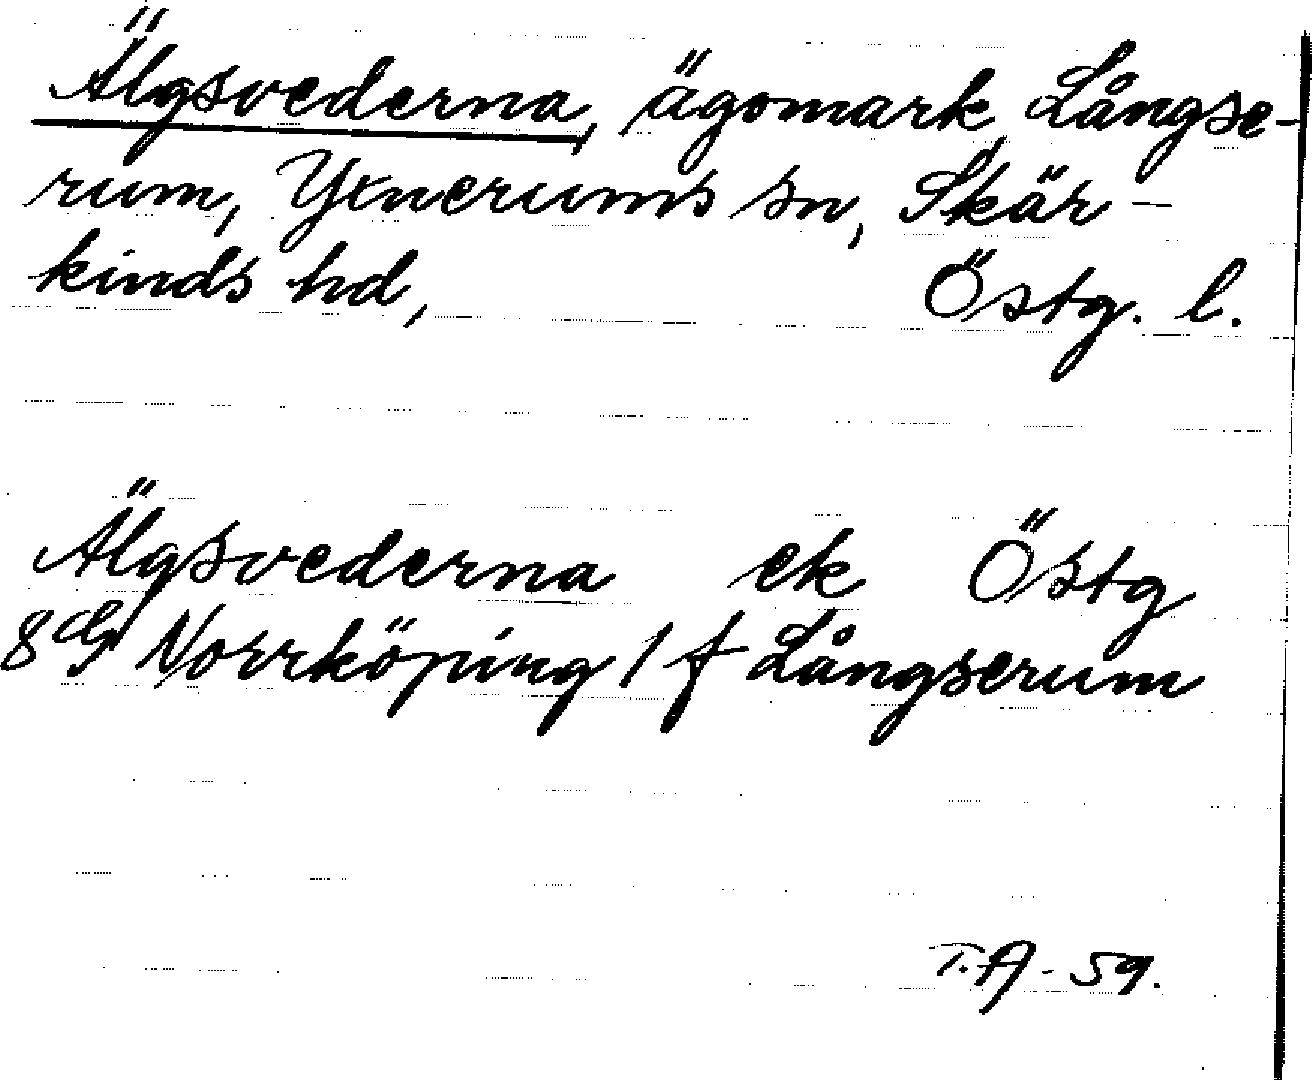 Älgsvederna, ägomark, Långse-
rum, Yxnerums sn, Skär-
kinds hd, Östg. l.
Älgsvederna ek Östg
8G Norrköping 1 f Långserum
T.A - 59.